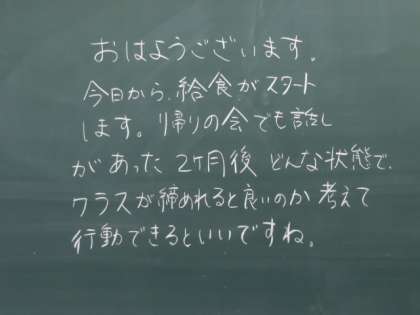 おはようございます。
今日から、給食がスタート
します。帰りの会でも話し
があった 2ヶ月後 どんな状態で、
クラスが締めれると良いのか 考えて
行動できるといいですね。